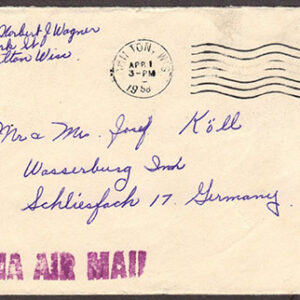 Herbert J Wagner
Park St
ilton Wisc
ILTON, WIS
APR 1
3-PM
1958
Mr & Mrs. Josef Köll
Wasserburg Ind
Schliesfach 17. Germany.
VIA AIR MAIL